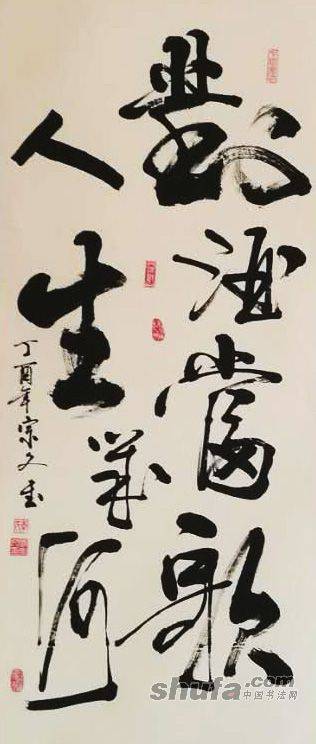 對酒當歌
人生幾何
丁酉年宗文書
shufa.com
中国书法网